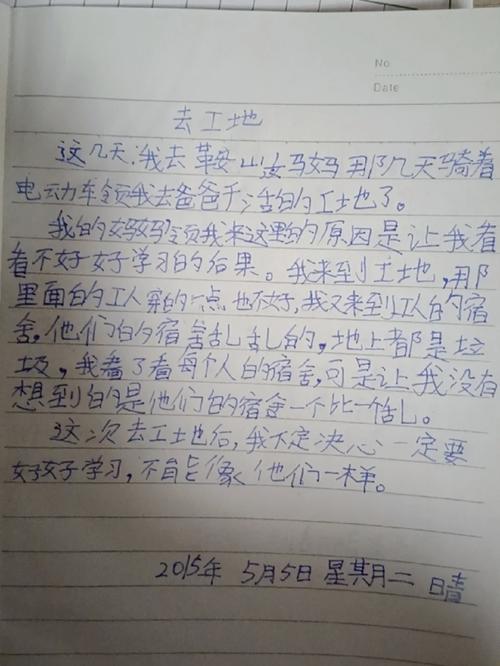 No
Date
去工地
这几天,我去鞍山妈妈那几天骑着
电动车领我去爸爸干活的工地了。
我的妈妈领我来这里的原因是让我看
看不好好学习的后果。我来到工地,那
里面的工人穿的一点也不好,我又来到工人的宿
舍,他们的宿舍乱乱的,地上都是垃
圾,我看了看每个人的宿舍,可是让我没有
想到的是他们的宿舍一个比一个乱。
这次去工地后,我下定决心一定要
好好学习,不能像他们一样。
2015年 5月5日 星期二 晴